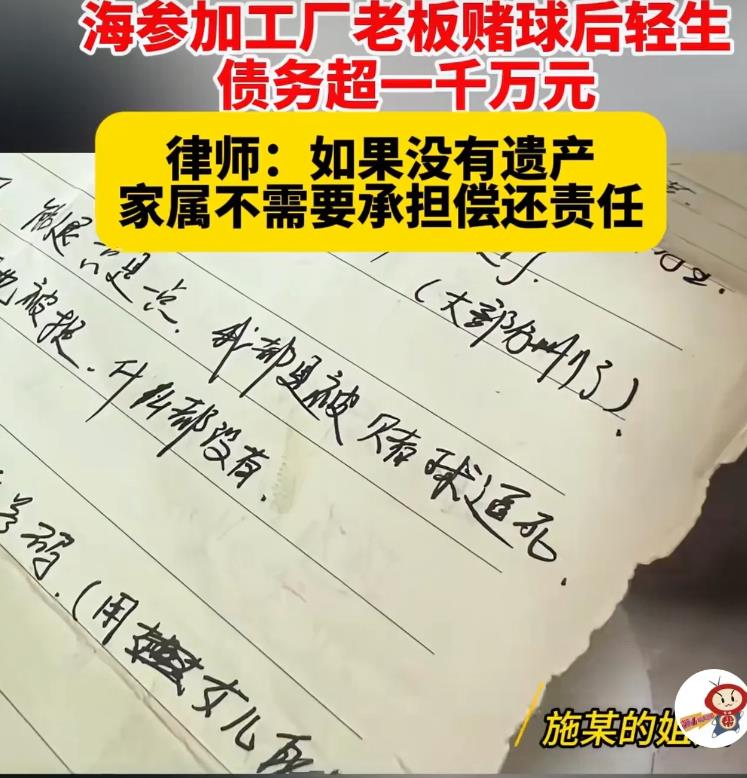 海参加工厂老板赌球后轻生
债务超一千万元
律师：如果没有遗产
家属不需要承担偿还责任
(大部分删了).
只是一点. 我都是被赌球逼死.
也被
什么都没有.
号码. (用
女儿
施某的姐